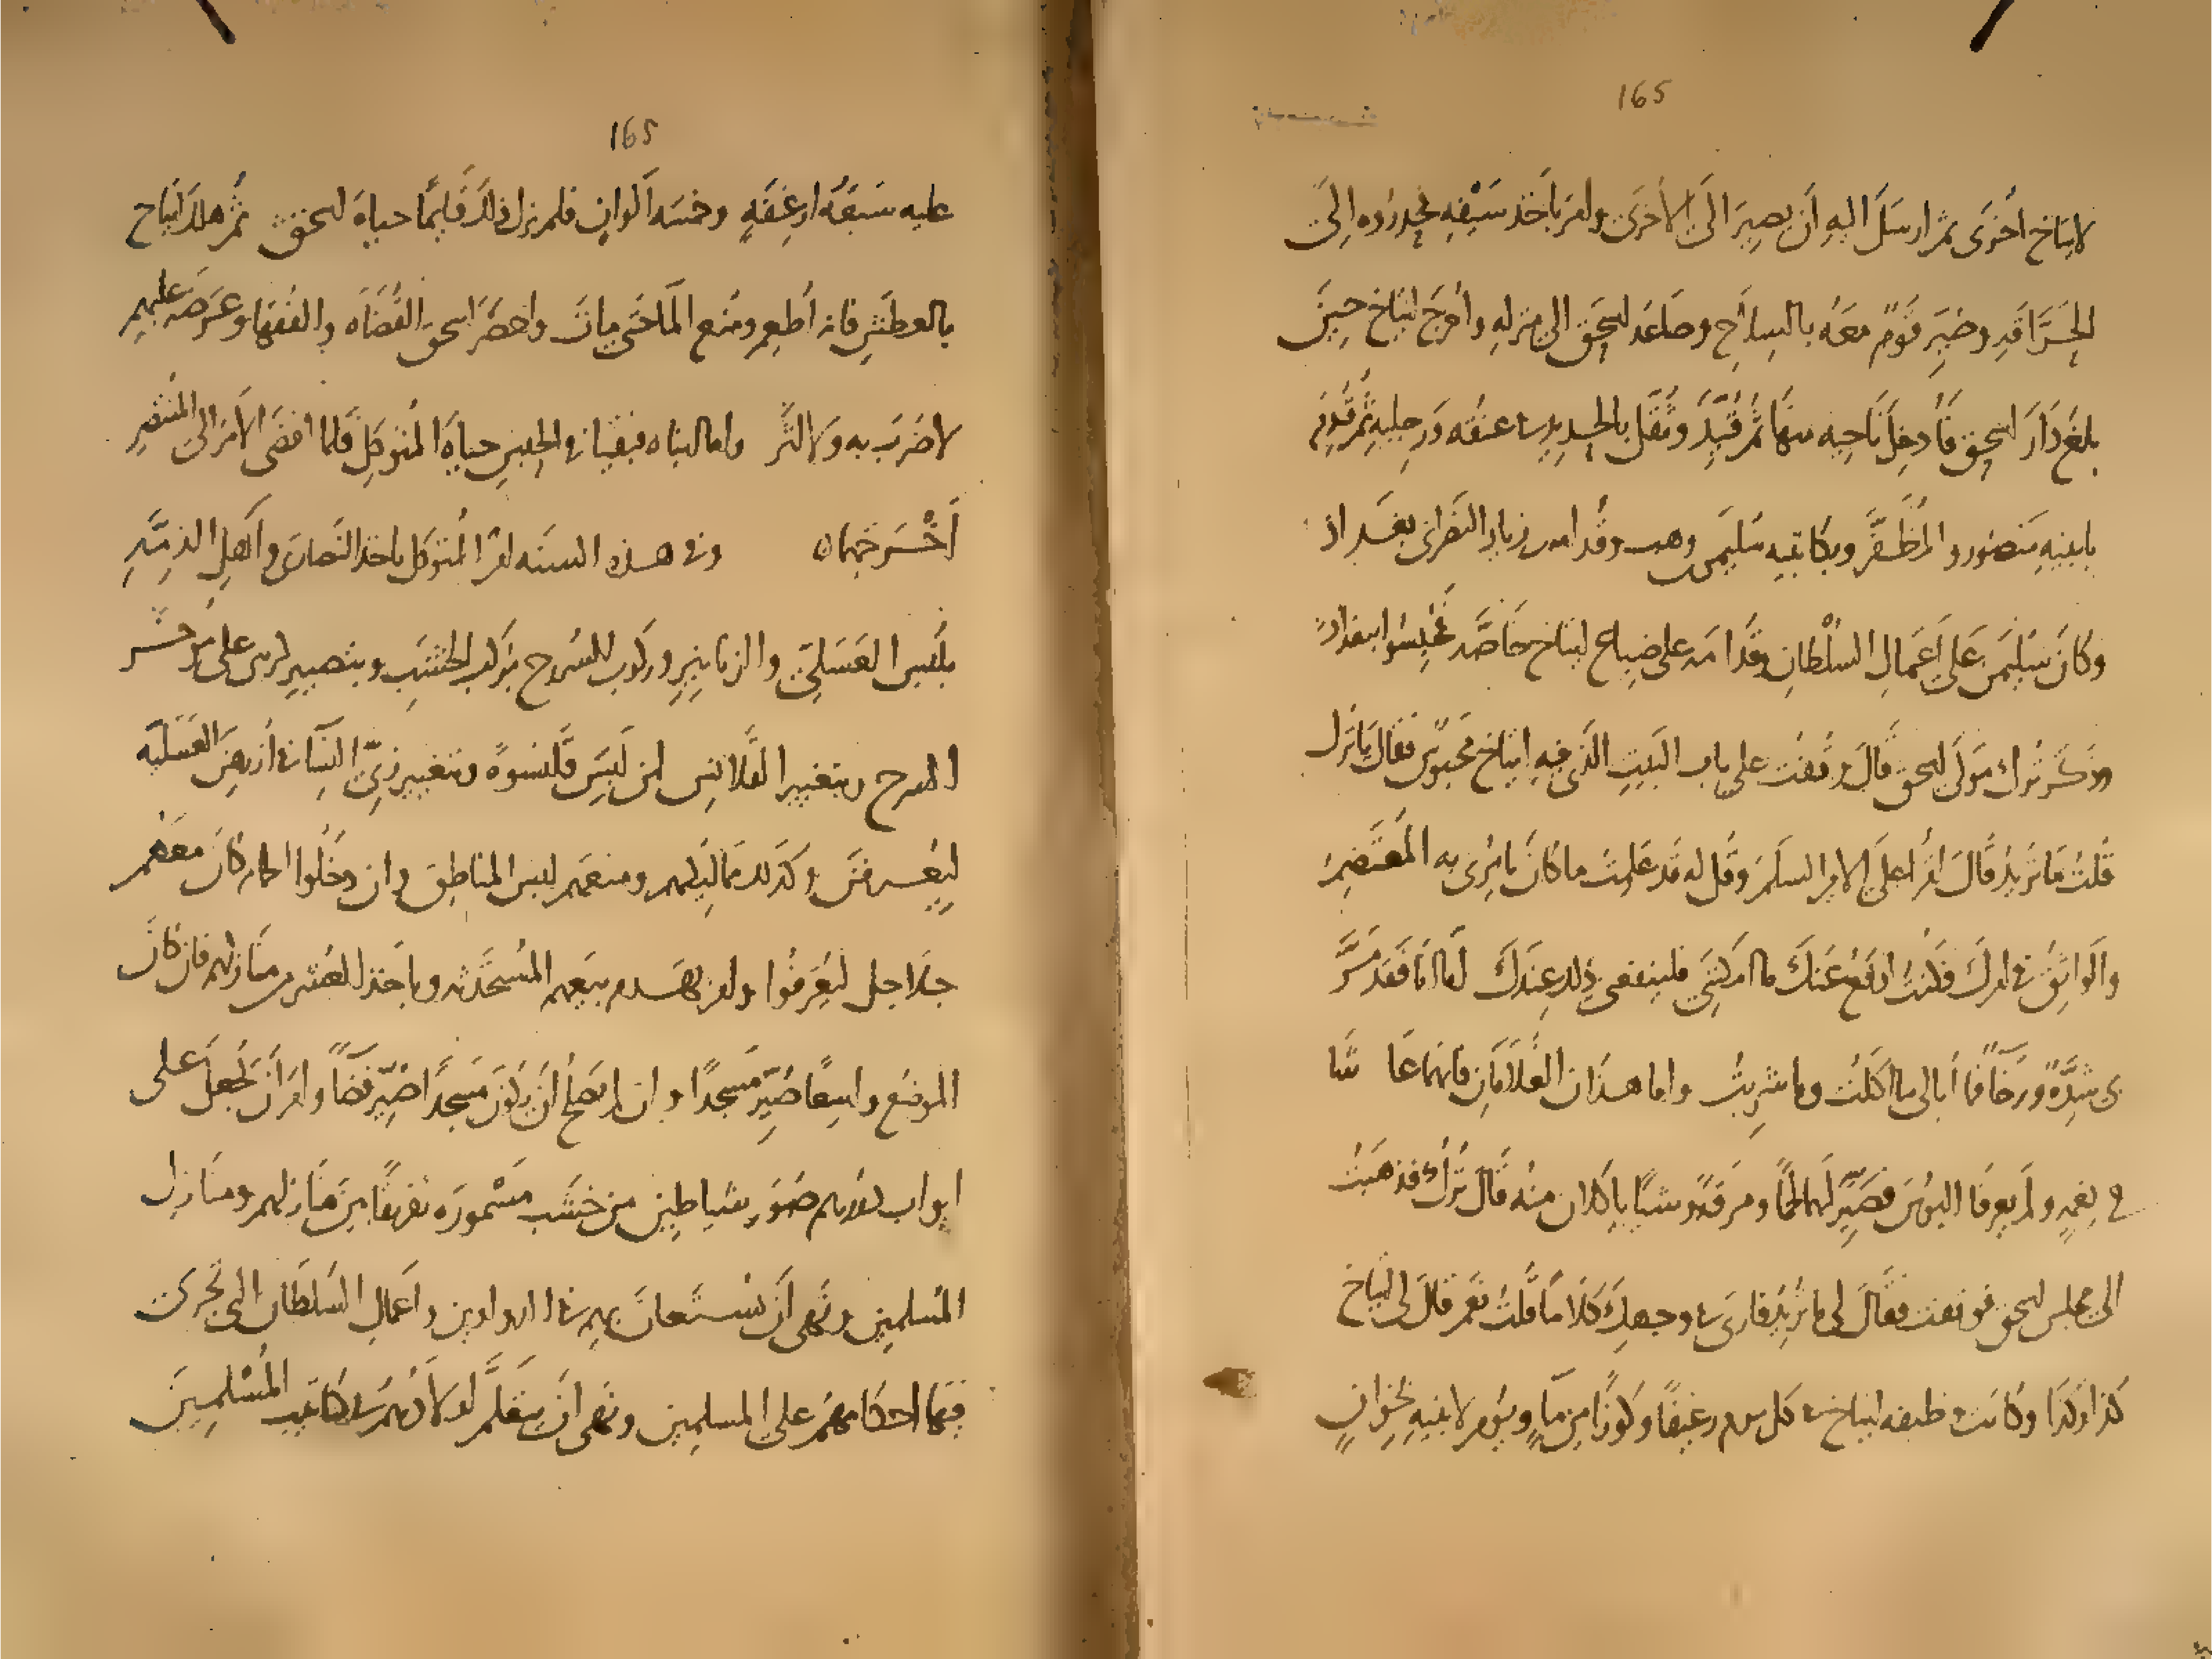 165
لايتاخ اخرى ثم ارسل اليه ان يصير الى الاخرى وامر باخذ سيفه فحدروه الى
الحراقه وصير قوم معه بالسلاح وصاعد اسحق الى منزله واخرج ايتاخ حين
بلغ دار اسحق فادخل ناحيه منها ثم قيد وثقل بالحديد في عنقه ورجليه ثم قدم
بابنيه منصور والمظفر وبكاتبيه سليمن بن وهب وقدامه بن زياد النصراني بغداذ
وكان سليمن على اعمال السلطان وقدامه على ضياع ايتاخ خاصه فحبسوا ببغداد
وذكر ترك مولى اسحق قال وقفت على باب البيت الذي فيه ايتاخ محبوس فقال يا ترك
قلت ما تريد قال اقرا على الامير السلم وقل له قد علمت ما كان يامرني به المعتصم
والواثق في امرك فكنت ادفع عنك ما امكنني فلينفعني ذلك عندك اما انا فقد مر
بي شدة ورخا فما ابالي ما اكلت وما شربت واما هذان الغلامان فانهما عاشا
في نعمه ولم يعرفا البوس فصير لهما لحما ومرقه وشيا ياكلان منه قال ترك فذهبت
الى مجلس اسحق فوقفت فقال لي ما تريد فارى في وجهك كلاما قلت نعم قال لي ايتاخ
كذا وكذا وكانت وظيفه ايتاخ في كل يوم رغيفا وكوزا من ماء ويومر لابنيه بخوان
165
عليه سبعه ارغفه وخمسه الوان فلم يزل ذلك قايما حياه اسحق ثم هلك ايتاخ
بالعطش فانه اطعم ومنع الما حتى مات واحضر اسحق القضاه والفقها وعرضه عليهم
لا ضرب به ولا اثر واما ابناه فبقيا في الحبس حياة المتوكل فلما افضى الامر الى المنتصر
اخرجهما وفي هذه السنه امر المتوكل باخذ النصارى واهل الذمة
بلبس العسلي والزنانير وركوب السروج بركب الخشب وبتصيير كرتين على موخر
السرج وبتغيير القلانس لمن لبس قلنسوة وبتغيير زي النسا في ازرهن العسليه
ليعرفن وكذلك مماليكهم ومنعهم لبس المناطق وان دخلوا الحمام كان معهم
جلاجل ليعرفوا وامر بهدم بيعهم المستحدثه وباخذ العشر من منازلهم فان كان
الموضع واسعا صير مسجدا وان لم يصلح ان يكون مسجدا صير فضا وامر ان يجعل على
ابواب دورهم صور شياطين من خشب مسموره تفريقا بين منازلهم ومنازل
المسلمين ونهى ان يستعان بهم في الدواوين واعمال السلطان التي تجري
فيها احكامهم على المسلمين ونهى ان يتعلم اولادهم في كتاتيب المسلمين